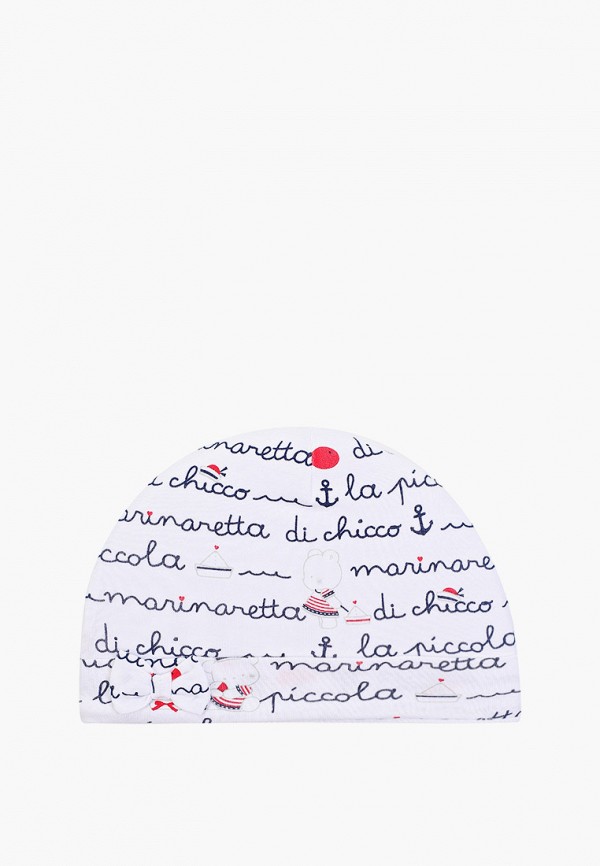 marinaretta di
chicco la picc
marinaretta di chicco
piccola marinare
marinaretta di chicco
di chicco la piccola
marinaretta
piccola